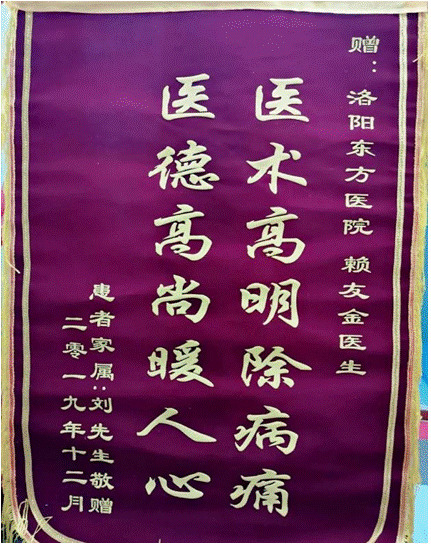 赠：洛阳东方医院 赖友金医生
医术高明除病痛
医德高尚暖人心
患者家属：刘先生敬赠
二零一九年十二月